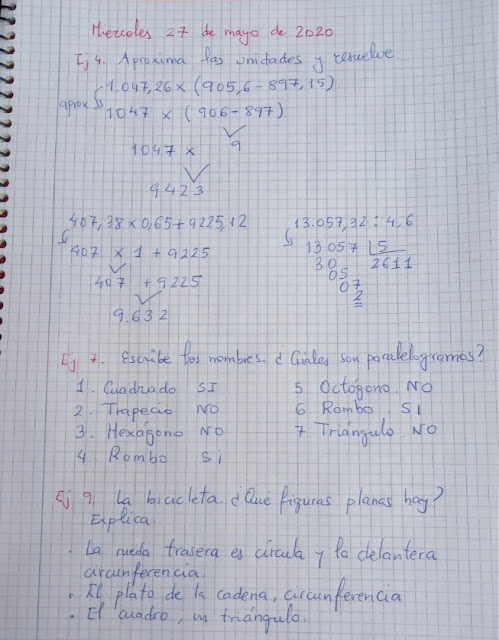 Miercoles 27 de mayo de 2020
Ej 4. Aproxima las unidades y resuelve
1.047,26 x (905,6 - 897,15)
aprox 1047 x (906 - 897)
1047 x 9
9423
407,38 x 0,65 + 9225,12
407 x 1 + 9225
407 + 9225
9.632
13.057,32 : 4,6
13.057 5
30 2611
05
07
2
Ej 7. Escribe los nombres. ¿Cuáles son paralelogramos?
1. Cuadrado SI
2. Trapecio NO
3. Hexágono NO
4 Rombo Si
5 Octógono. NO
6. Rombo. SI
7 Triángulo. NO
Ej 9. La bicicleta. ¿Qué figuras planas hay?
Explica.
. La rueda trasera es círcula y la delantera
circunferencia.
. El plato de la cadena, circunferencia
. El cuadro, un triángulo.